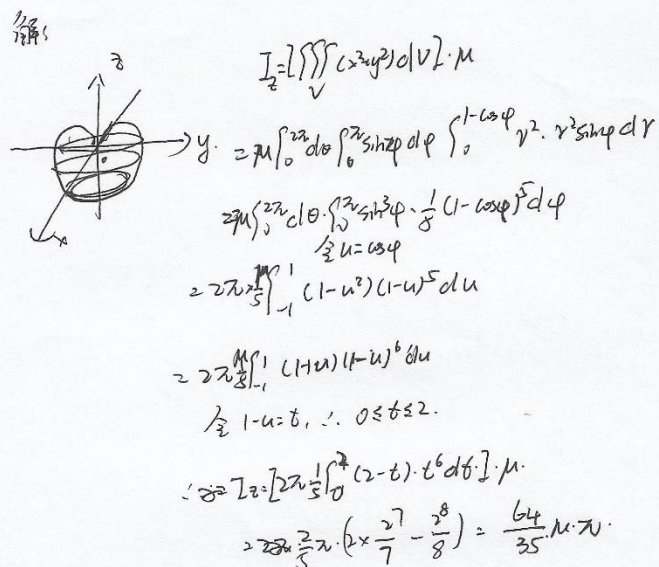 解:
I_z=[∭_V (x²+y²)dV]·μ
z
y
x
=μ∫_0^{2π}dθ∫_0^π sin²φ dφ ∫_0^{1-cosφ} r²·r² sinφ dr
=μ∫_0^{2π}dθ·∫_0^π sin³φ·1/5(1-cosφ)^5 dφ
令u=cosφ
=2π×μ/5∫_{-1}^1 (1-u²)(1-u)^5 du
=2π μ/5∫_{-1}^1 (1+u)(1-u)^6 du
令 1-u=t, ∴ 0≤t≤2.
∴ I_z=[2π 1/5∫_0^2 (2-t)·t^6 dt·]·μ.
= 2/5 π·(2×2^7/7 - 2^8/8) = 64/35 ·μ·π.